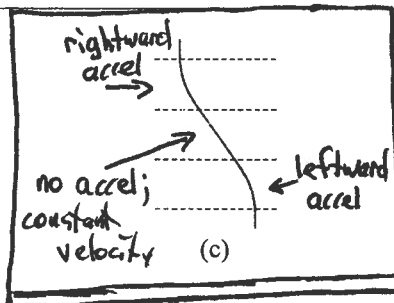 rightward
accel
no accel;
constant
velocity
leftward
accel
(c)